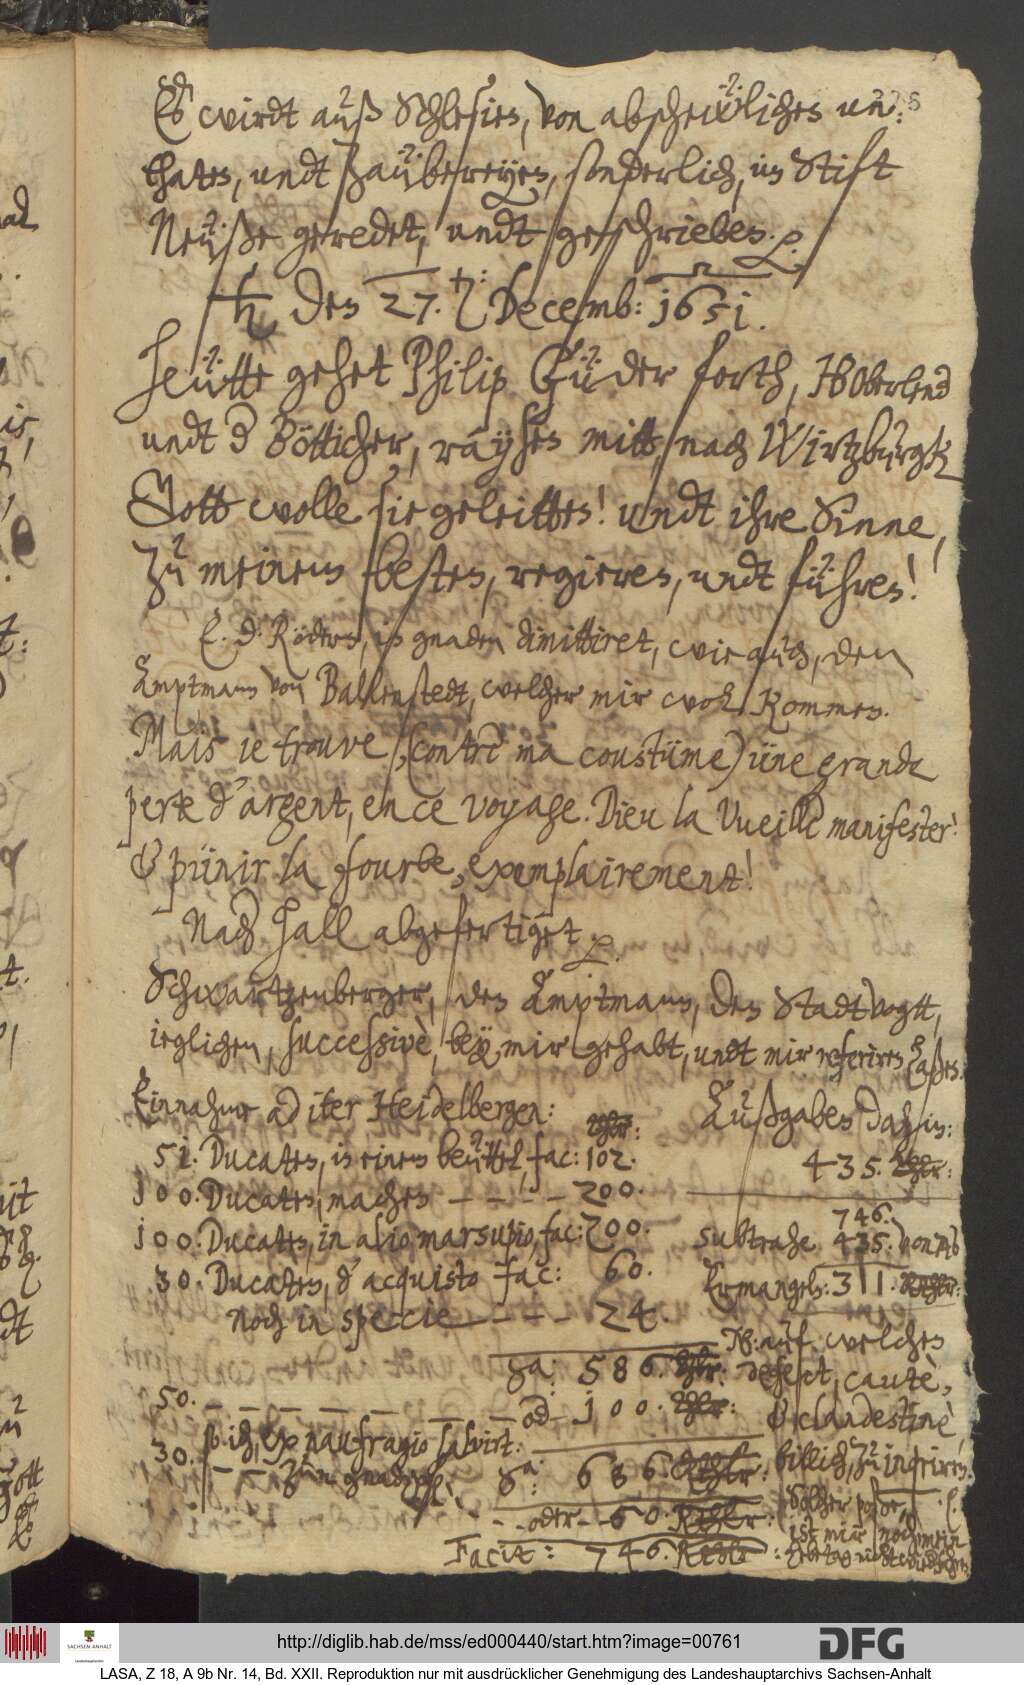 Es wirdt auß Schlesien, von abscheülichen un¬
thaten, undt Zaübereyen, sonderlich, im Stift
Neüße geredet, undt geschrieben. ⁊
♄ den 27. Decemb: 1651.
Heütte gehet Philip Güder forth, HB Oberlend
undt D Bötticher, raysen mitt, nach Wirtzburgk
Gott wolle sie geleitten! undt ihre Sinne,
Zu meinem besten, regieren, undt führen!
E. d. Rödern, in gnaden dimittiret, wie auch, den
Amptmann von Ballenstedt, welcher mir wol kommen.
Mais je trouve, (contre ma coustüme) üne grande
perte d'argent, en ce voyage. Dieu la vueille manifester!
& pünir la fourbe, exemplairement!
Nach Hall abgefertiget ⁊.
Schwartzenberger, den Amptmann, den Stadtvogtt,
ieglichen, successivè, bey mir gehabt, undt mir referiren laßen.
Einnahme ad iter Heidelbergen: Thlr:
Außgaben dahin:
51. Ducaten, in einem beüttel, fac: 102.
435. Thlr:
100. Ducaten, machen – – – – 200.
746.
100. Ducaten, in alio marsupio, fac: 200.
subtrahe 435. von
30. Ducaten, d'acquisto fac: 60.
Ermangeln: 311. Rthlr:
noch in specie – – – 24.
NB: auf welchen
Sa: 586. Thlr:
defect, cautè,
50. – – – – – – – od – 100. Thlr:
& clandestinè
so ich, ex naufragio salvirt:
billich, zu inquiriren.
30. – – Zum
Sa: 686. Rthlr:
Solcher
– – – oder – – 60. Rthlr:
ist mir noch mein
Facit: 746. Rthlr:
http://diglib.hab.de/mss/ed000440/start.htm?image=00761
SACHSEN-ANHALT
DFG
LASA, Z 18, A 9b Nr. 14, Bd. XXII. Reproduktion nur mit ausdrücklicher Genehmigung des Landeshauptarchivs Sachsen-Anhalt